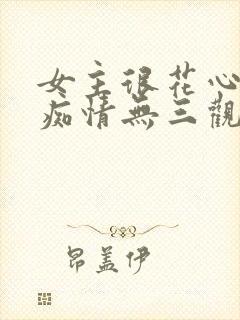 女主很花心
痴情無三觀
昂盖伊